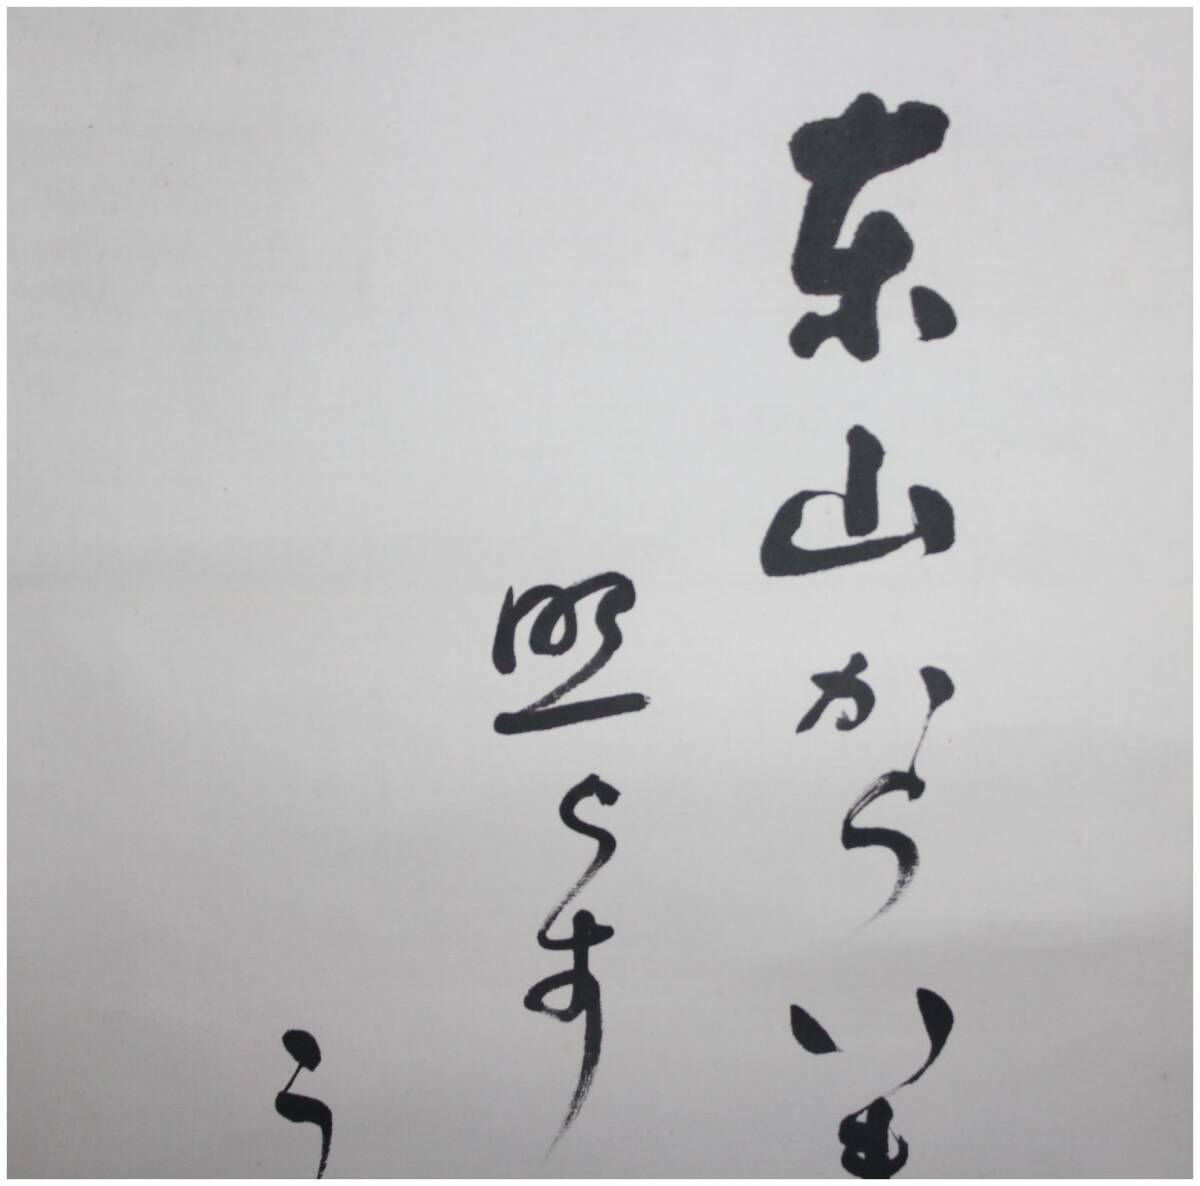 東山からいま
照らす
う